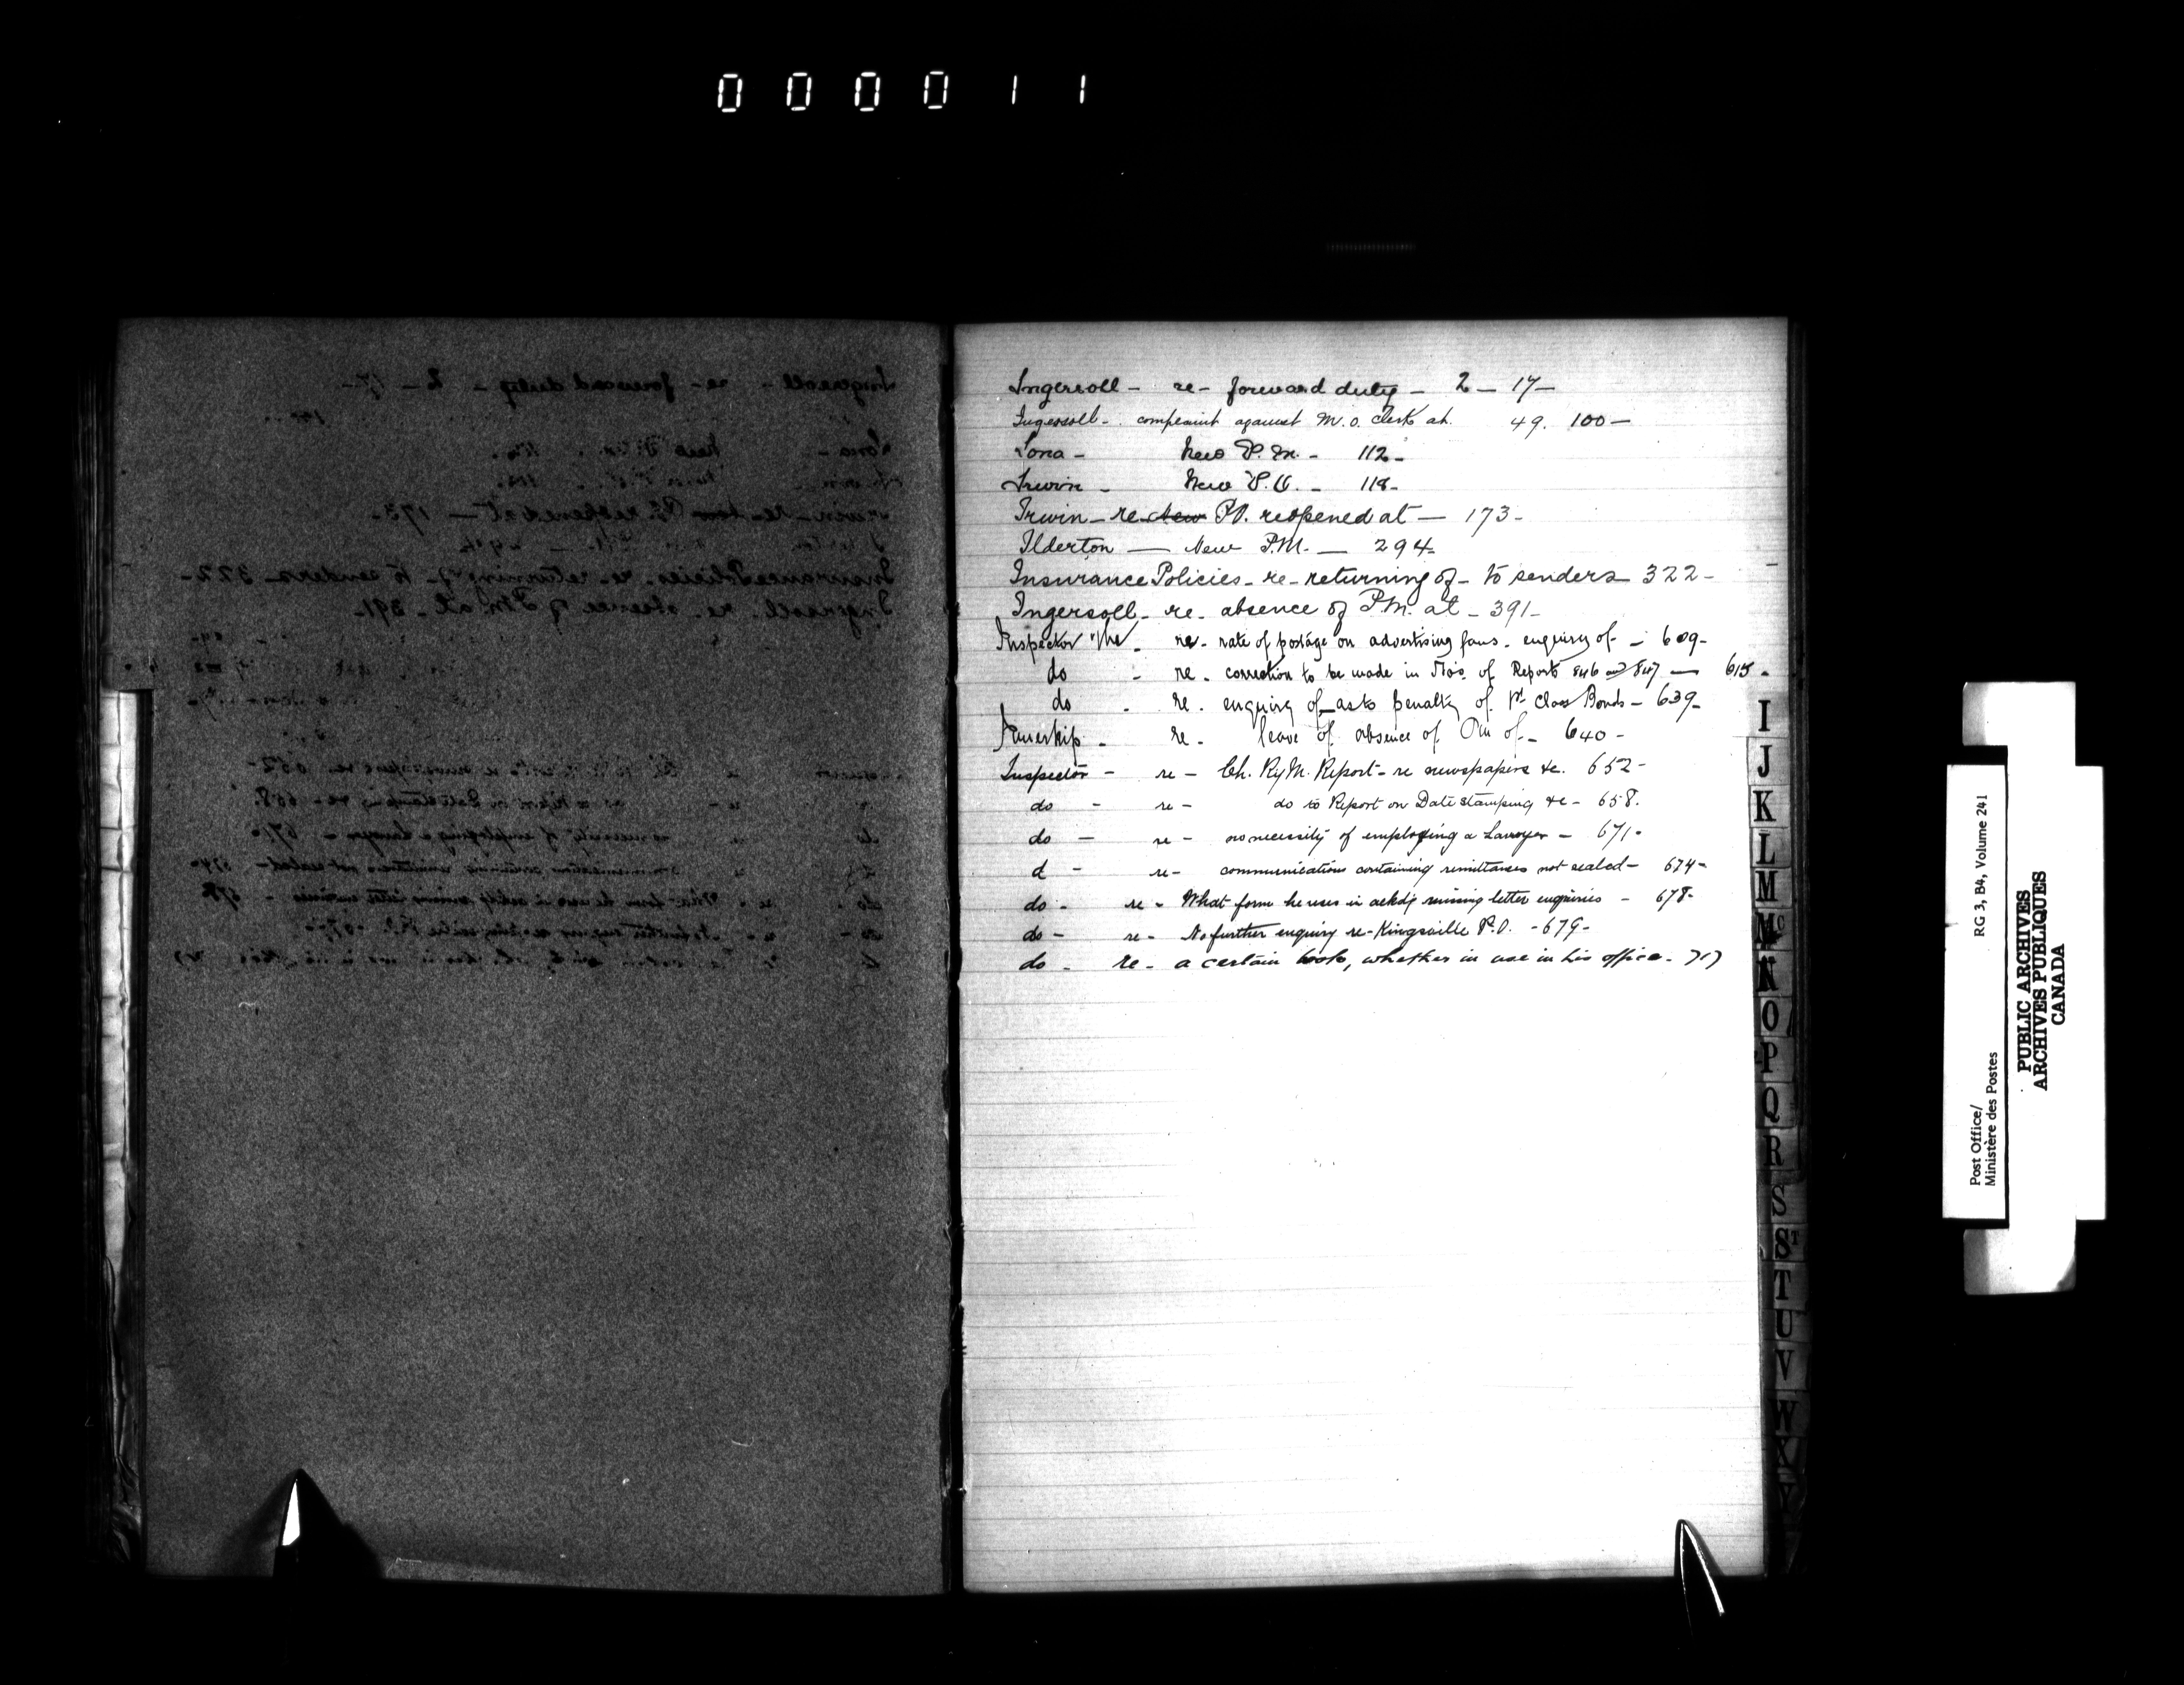 000011
Ingersoll - re - forward duty - 2 - 17 -
Ingersoll - complaint against M.O. Clerk at. 49. 100 -
Iona - New P.M. - 112 -
Irwin - New P.O. - 118 -
Irwin - re - New P.O. reopened at - 173 -
Ilderton - New P.M. - 294 -
Insurance Policies - re - returning of - to senders - 322 -
Ingersoll - re - absence of P.M. at - 391 -
Inspector The - re - rate of postage on advertising fans - enquiry of - 609 -
do - re - correction to be made in Nos. of Reports 846 and 847 - 615 -
do - re - enquiry of as to penalty of 1st Class Bonds - 639 -
Innerkip - re - leave of absence of Pm of - 640 -
Inspector - re - Ch. Ry M. Report - re newspapers &c. 652 -
do - re - do to Report on Date stamping &c - 658.
do - re - no necessity of employing a Lawyer - 671 -
d - re - communications containing remittances not sealed - 674 -
do - re - What form he uses in ackdg missing letter enquiries - 678 -
do - re - No further enquiry re - Kingsville P.O. - 679 -
do - re - a certain book, whether in use in his office -
I
J
K
L
M
Mc
N
O
P
Q
R
S
ST
T
U
V
W
X
Y
Post Office/
Ministère des Postes
RG 3, B4, Volume 241
PUBLIC ARCHIVES
ARCHIVES PUBLIQUES
CANADA